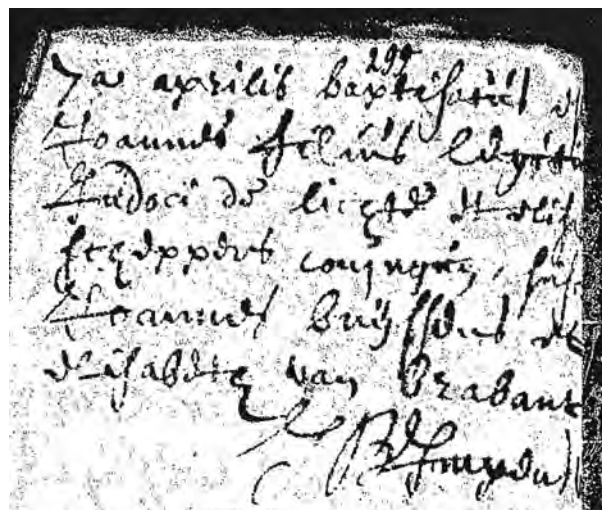 297
7a aprilis baptisatus e
Joannes filius legiti
Judoci de lichte et elis
scheppers coniugum, sus
Joannes buyssens et
elisabeth van brabant